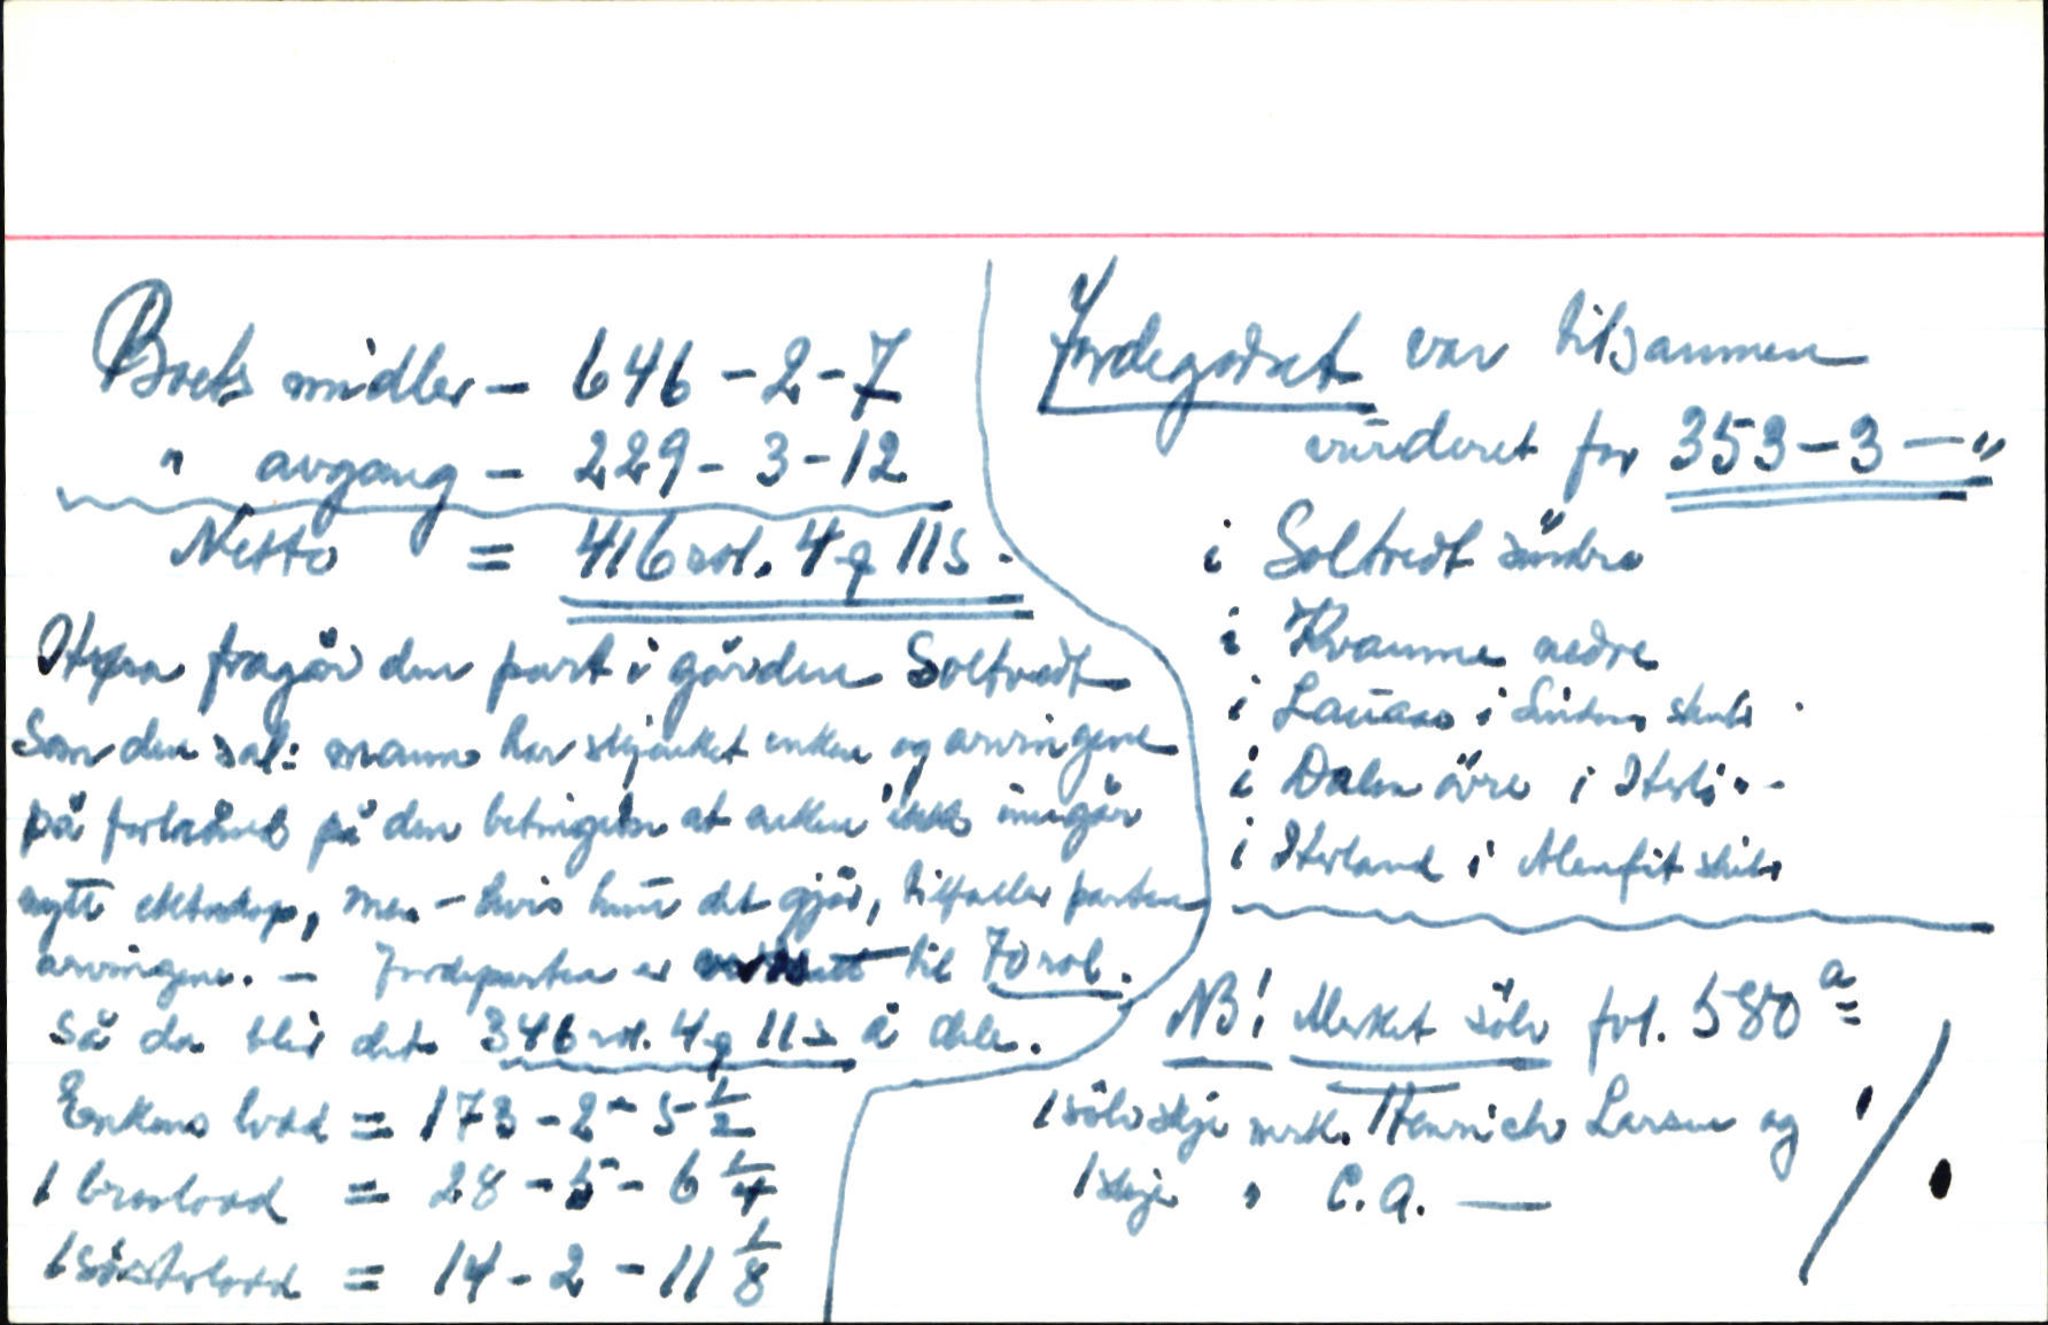 Boets midler - 646 - 2 - 7
" avgang - 229 - 3 - 12
Netto = 416 rdl. 4 q 11 s.
fragår den part i gården Soltvedt
Som den sal: mann har skjenket enken og arvingene
på på den betingelse at enken ikke inngår
nytt ekteskap, men - hvis hun det gjör, tilfaller parten
arvingene. - Jordeparten er til 70 rdl.
Så da blir det 346 rdl. 4 q 11 s å dele.
Enkens lodd = 173 - 2 - 5 1/2
1 brorlodd = 28 - 5 - 6 1/4
1 sösterlodd = 14 - 2 - 11 1/8
Jordegodset var tilsammen
vurderet for 353 - 3 - "
i Soltvedt söndre
i Kvamme nedre
i Lauaas i Lindaas skibr
i Dalen övre i
i Hterland i Alenfit skibr
NB! Merket sölv fol. 580 a
1 sölvskje mrk. Henrich Larsen og
1 skje " C. A. —